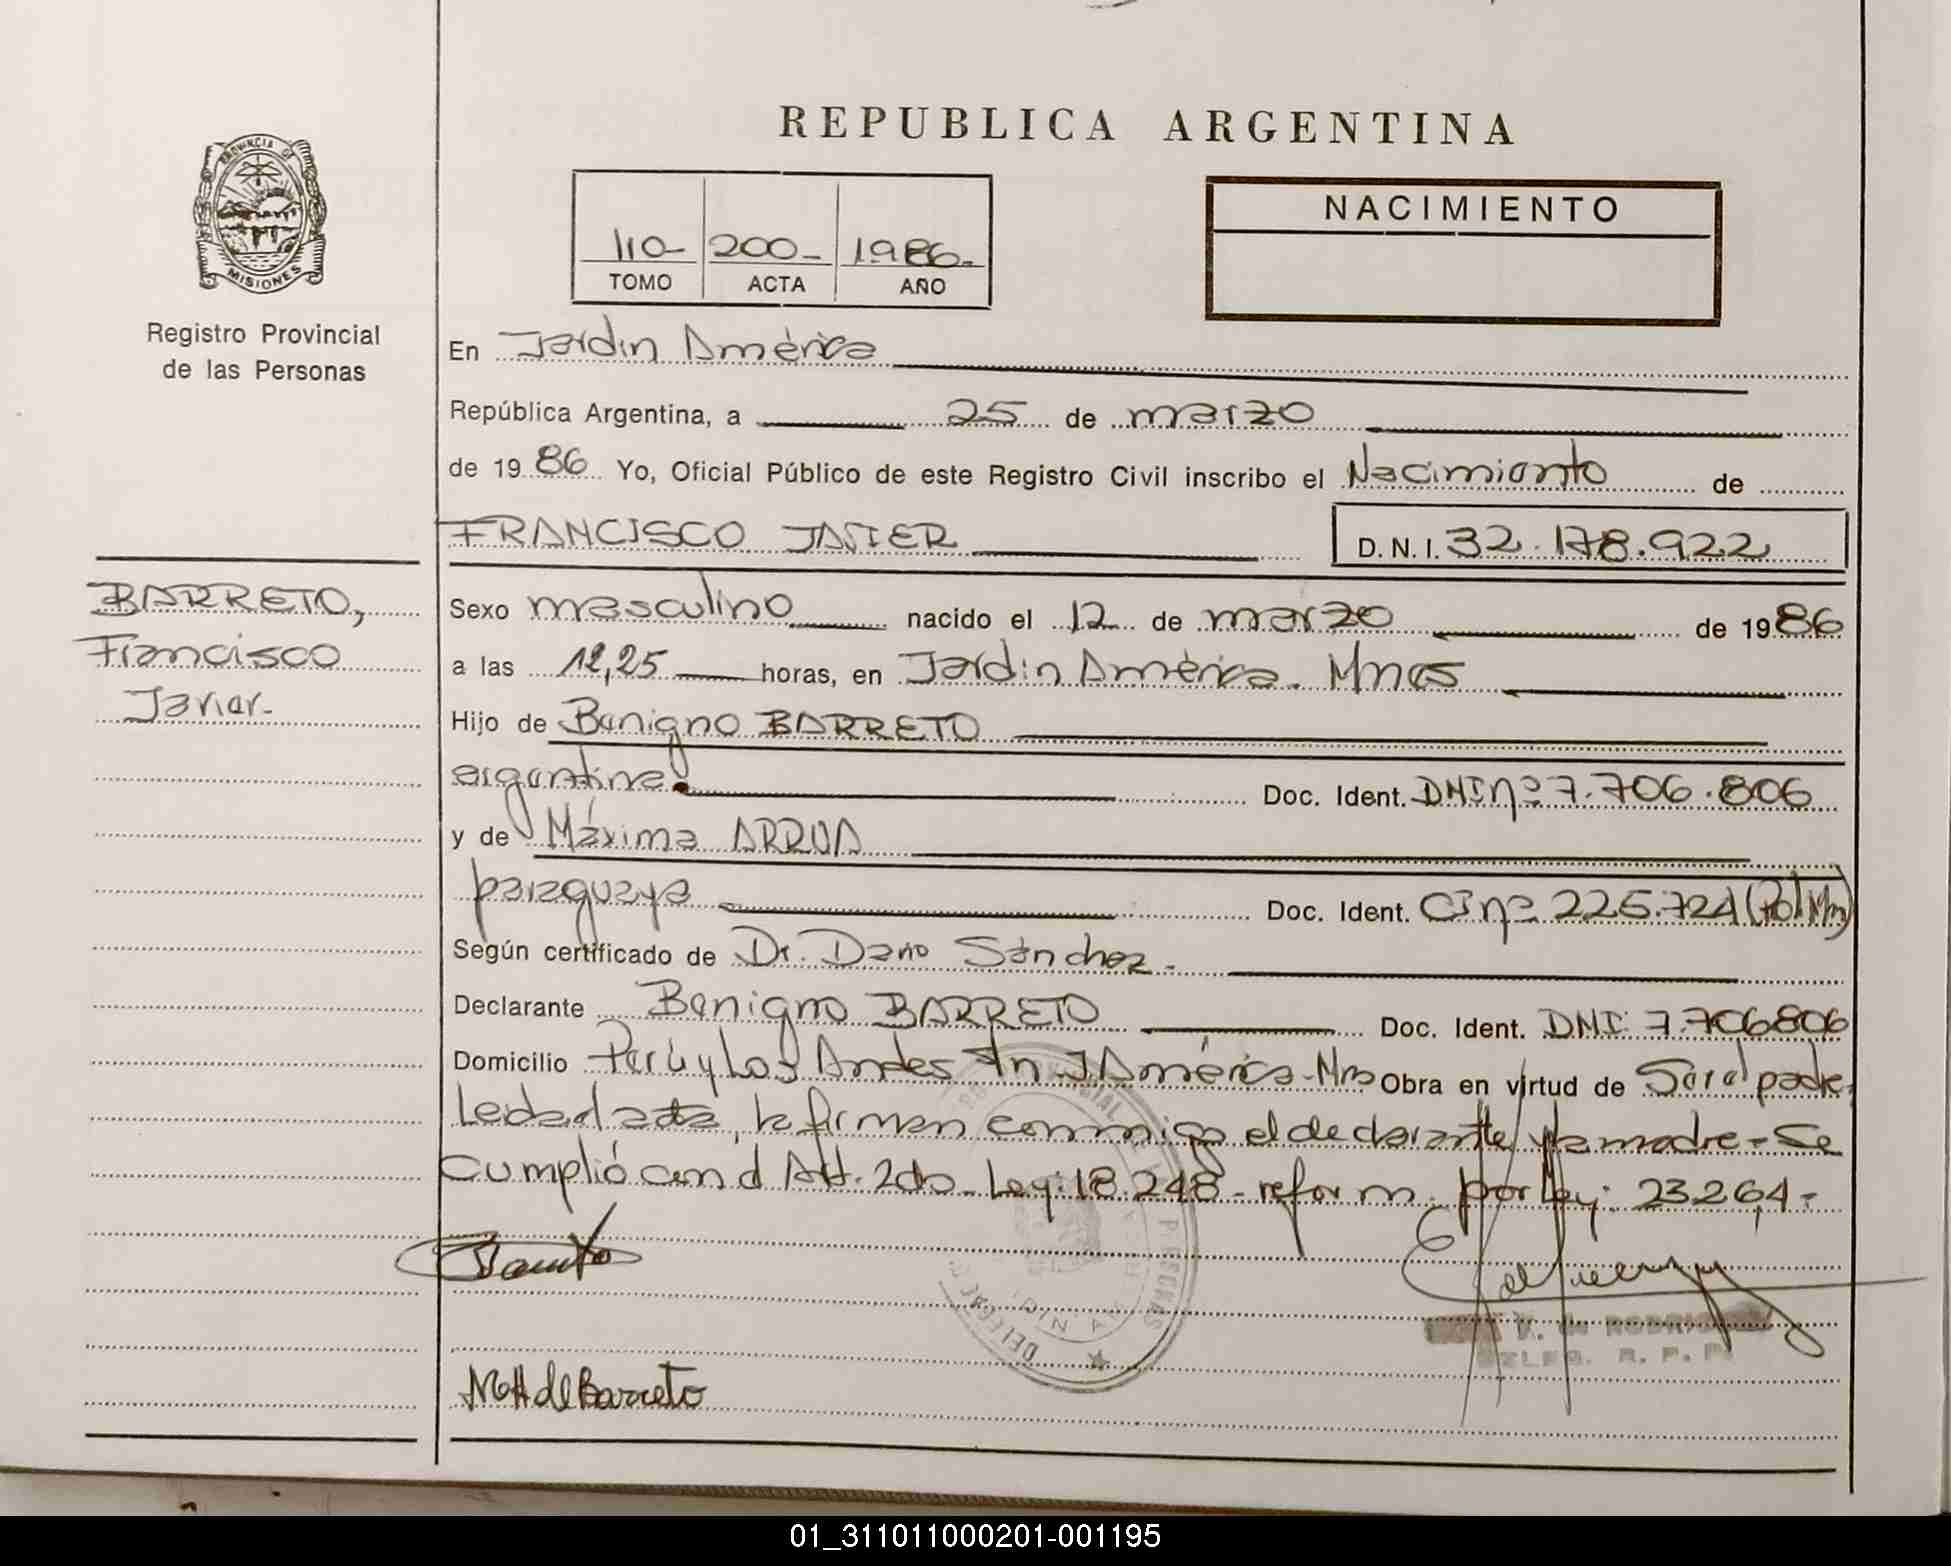 REPUBLICA ARGENTINA
PROVINCIA DE
MISIONES
Registro Provincial
de las Personas
110- 200- 1986.-
TOMO ACTA AÑO
NACIMIENTO
En Jardin América
República Argentina, a 25 de marzo
de 19 86 Yo, Oficial Público de este Registro Civil inscribo el Nacimiento de
FRANCISCO JAVIER D.N.I. 32.178.922
BARRETO,
Francisco
Javier.-
Sexo masculino nacido el 12 de marzo de 19 86
a las 12,25 horas, en Jardin América. Mnes
Hijo de Benigno BARRETO
argentina. Doc. Ident. DNI nº 7.706.806
y de Máxima ARRUA
paraguaya Doc. Ident. CI nº 225.724 (Pol Mn)
Según certificado de Dr. Dario Sánchez.-
Declarante Benigno BARRETO Doc. Ident. DNI. 7.706806
Domicilio Perú y Los Andes J América-Mns Obra en virtud de Ser el padre.
Leida el acta, la firman conmigo el declarante y la madre - Se
cumplió con el Art. 2do Ley: 18.248 - reform. por ley: 23264,-
Barreto
V. de RODRIG
DELEG. R. P. P.
M A de Barreto
01_311011000201-001195